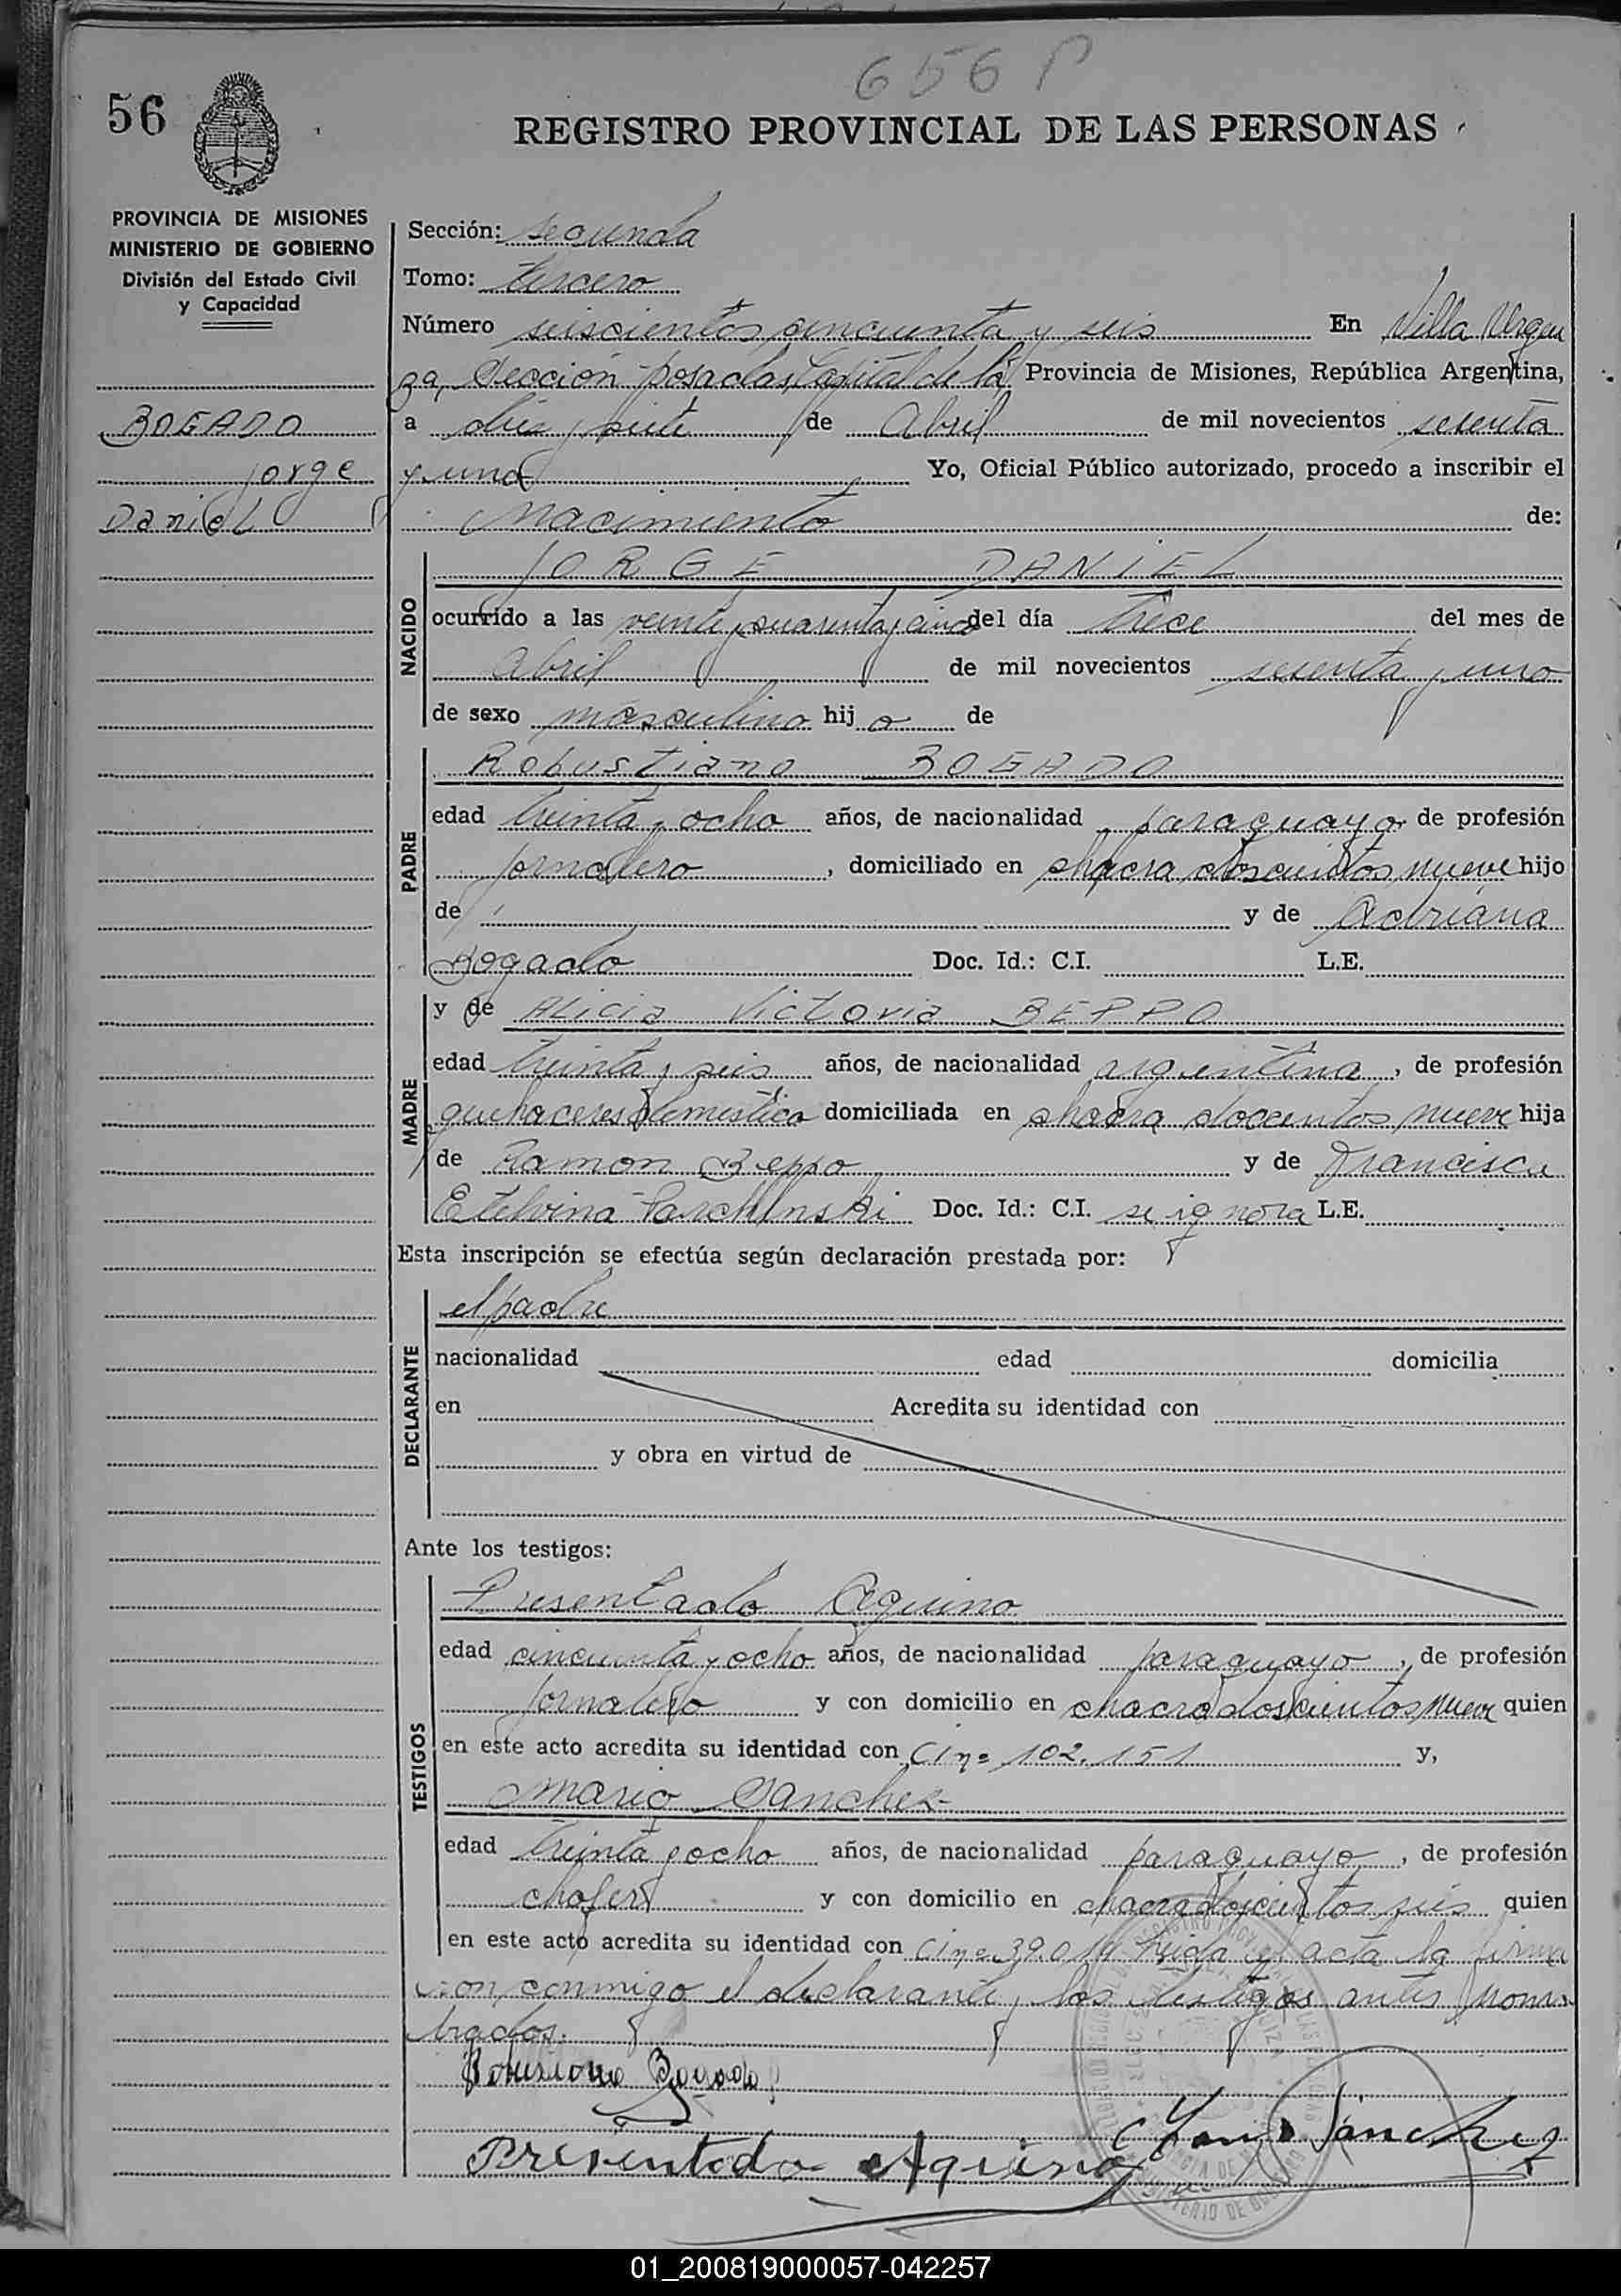 656 P
56
REGISTRO PROVINCIAL DE LAS PERSONAS
PROVINCIA DE MISIONES
MINISTERIO DE GOBIERNO
División del Estado Civil
y Capacidad
BOGADO
Jorge
Daniel
Sección: Segunda
Tomo: tercero
Número seiscientos cincuenta y seis En Villa Urqui
za, Sección posadas, Capital de la Provincia de Misiones, República Argentina,
a diez y siete de Abril de mil novecientos sesenta
y uno Yo, Oficial Público autorizado, procedo a inscribir el
Nacimiento de:
NACIDO
JORGE DANIEL
ocurrido a las veinte y cuarenta y cinco del día trece del mes de
Abril de mil novecientos sesenta y uno
de sexo masculino hijo de
PADRE
Robustiano BOGADO
edad treinta y ocho años, de nacionalidad paraguayo de profesión
jornalero, domiciliado en chacra doscientos nueve hijo
de y de Adriana
Bogado Doc. Id.: C.I. L.E.
MADRE
y de Alicia Victoria BEPPO
edad treinta y seis años, de nacionalidad argentina, de profesión
quehaceres domestico domiciliada en chacra doscientos nueve hija
de Ramon Beppo y de Francisca
Etelvina Doc. Id.: C.I. se ignora L.E.
Esta inscripción se efectúa según declaración prestada por:
DECLARANTE
el padre
nacionalidad edad domicilia
en Acredita su identidad con
y obra en virtud de
Ante los testigos:
TESTIGOS
Presentado Aquino
edad cincuenta y ocho años, de nacionalidad paraguayo, de profesión
jornalero y con domicilio en chacra doscientos nueve quien
en este acto acredita su identidad con CI nº 102.151 y,
Mario Sanchez
edad treinta y ocho años, de nacionalidad paraguayo, de profesión
chofer y con domicilio en chacra doscientos seis quien
en este acto acredita su identidad con CI nº 39.019 leida el acta la firma
ron conmigo el declarante y los testigos antes nom
brados.
Robustiano Bogado
Mario Sánchez
Presentado Aquino
01_200819000057-042257